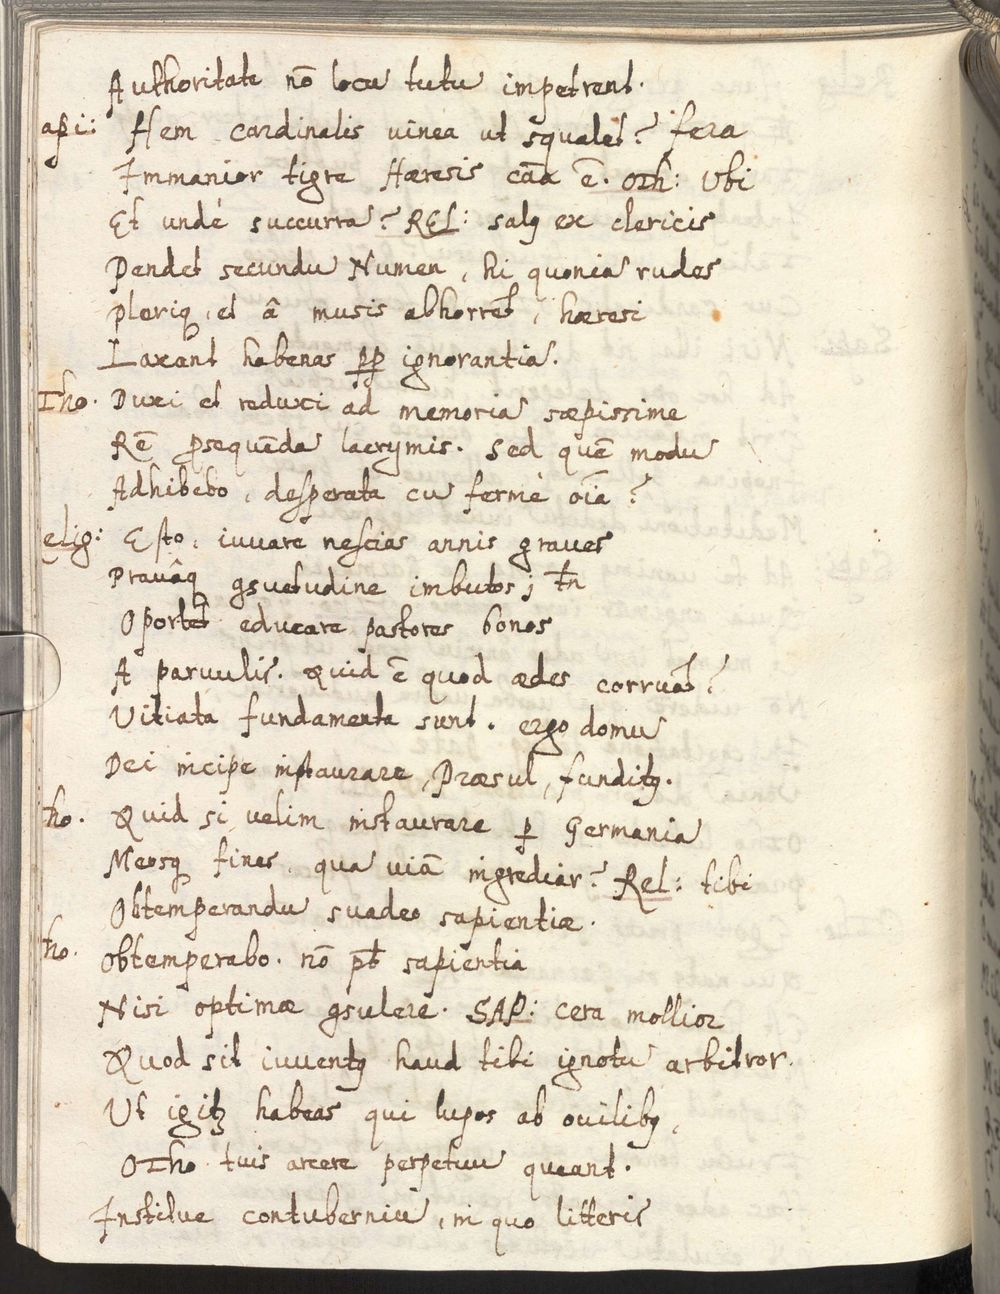 Authoritate nō locu tutu impetrent.
api: Hem cardinalis vinea ut squalet? fera
Immanior tigre Hæresis cāa ē. OTh: Ubi
Et undè succurra? REL: salg ex clericis
Pendet secundu Numen, hi quonia rudes
Pleriq, et â musis abhorret, hæresi
Laxant habenas pp ignorantia.
Tho. Duxi et reduxi ad memoria sæpissime
Rē psequēda lacrymis. Sed quē modu
Adhibebo, desperata cu fermè oīa?
elig: Esto, iuvare nescias annis graues
Prauâq gsuetudine imbutos; tn
Oportet educare pastores bonos
A paruulis. Quid ē quod ædes corruāt?
Vitiata fundamenta sunt. ergo domu
Dei incipe instaurare, Præsul, funditg.
ho. Quid si velim instaurare p Germania
Meosq fines, qua viā ingrediar? Rel: tibi
Obtemperandu suadeo sapientiæ.
ho. Obtemperabo. nō pt sapientia
Nisi optimæ gsulere. SAP: cera mollior
Quod sit iuventg haud tibi ignotu arbitror.
Ut igitz habeas qui lupos ab ovilibg,
OTho tuis arcere perpetuu queant.
Institue contuberniu, in quo litteris